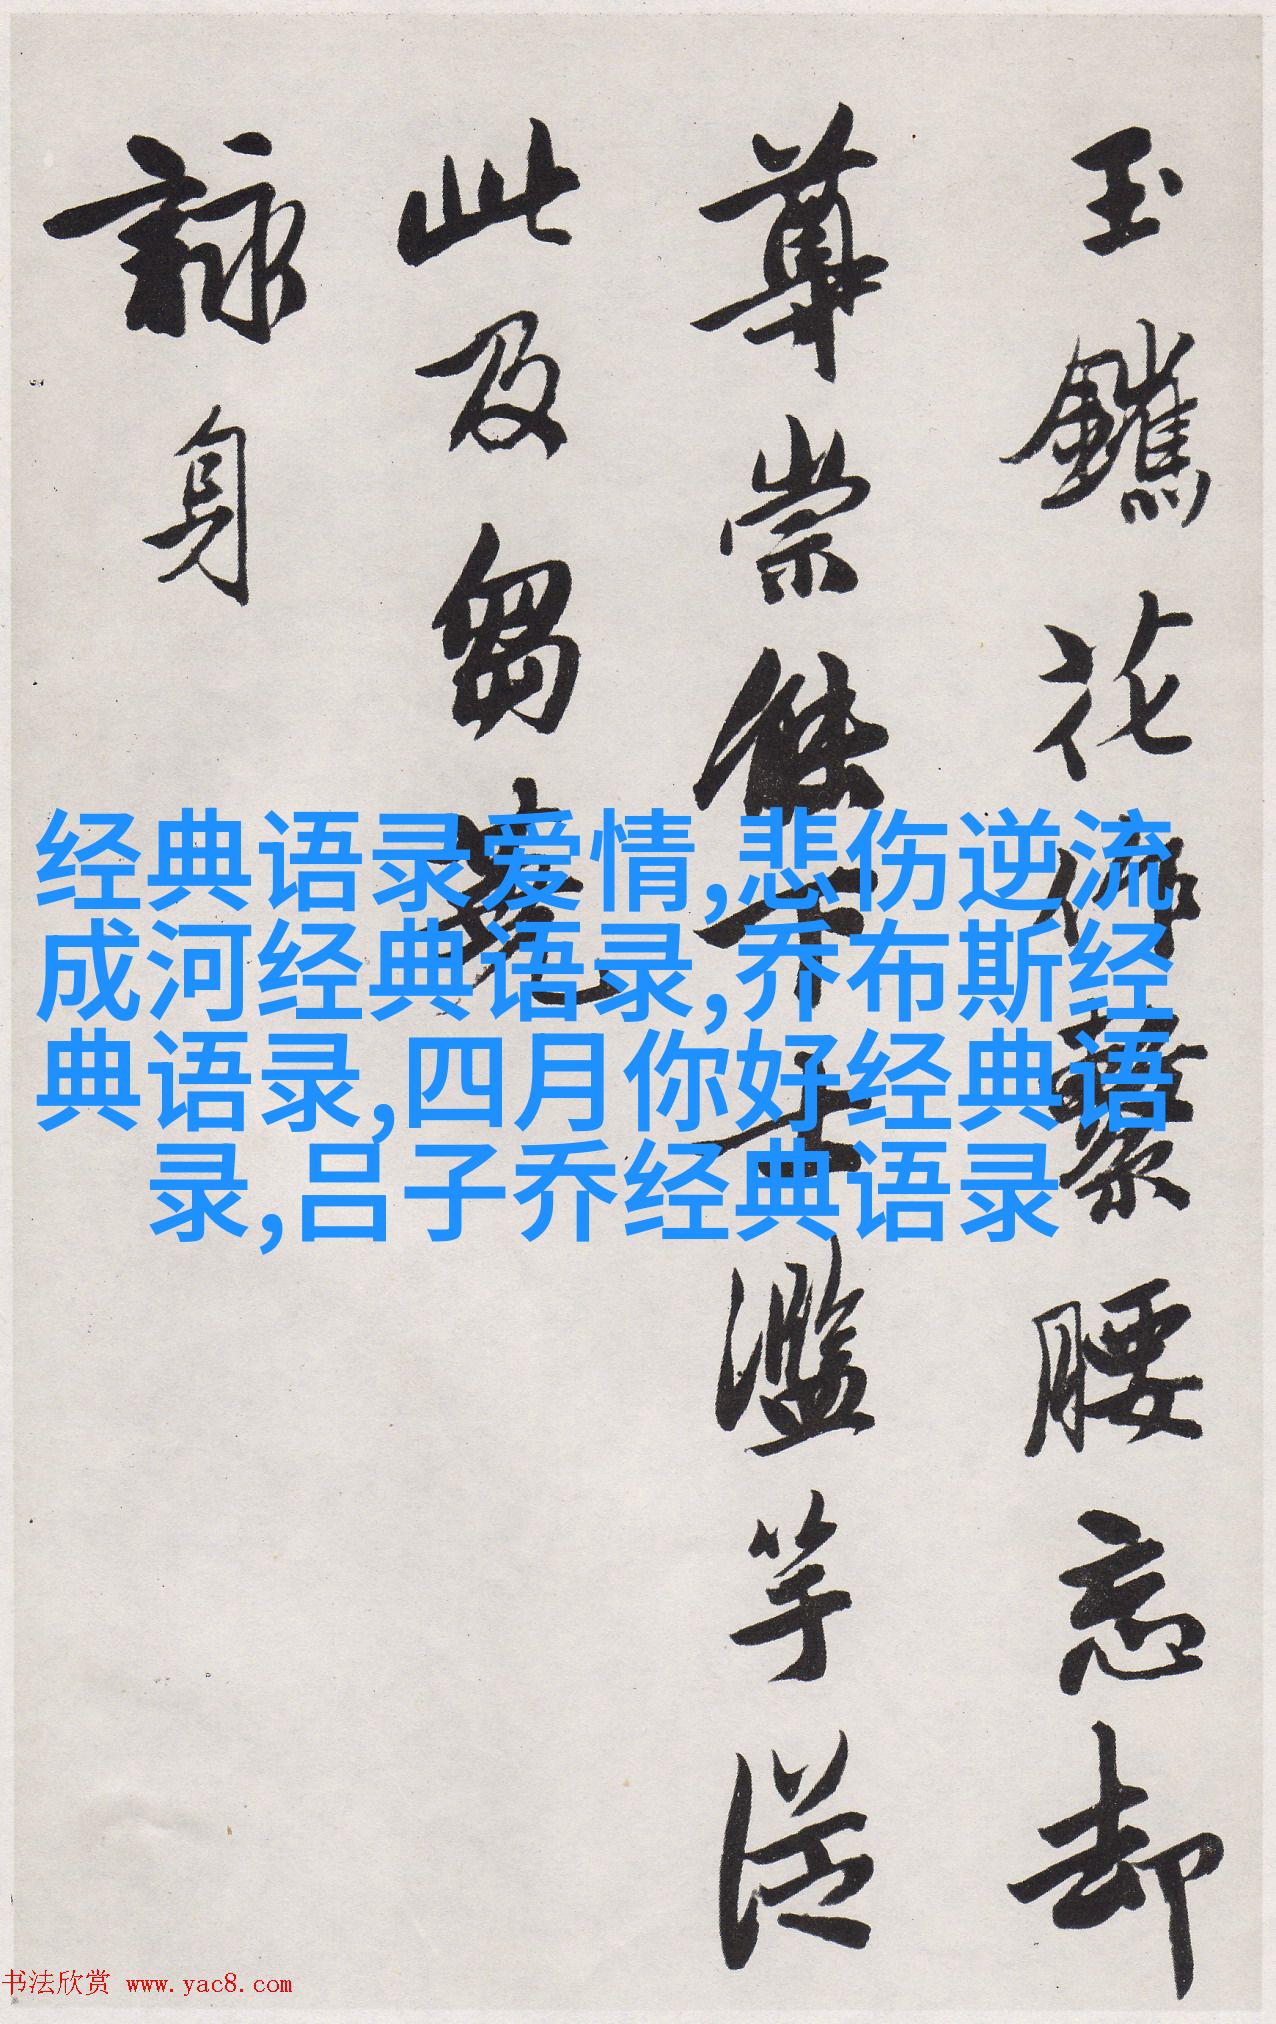 玉鑱花作繫腰忘却
尊崇傑下士濫竽從
此及芻蕘
詠身
经典语录爱情,悲伤逆流
成河经典语录,乔布斯经
典语录,四月你好经典语
录,吕子乔经典语录
书法欣赏 www.yac8.com